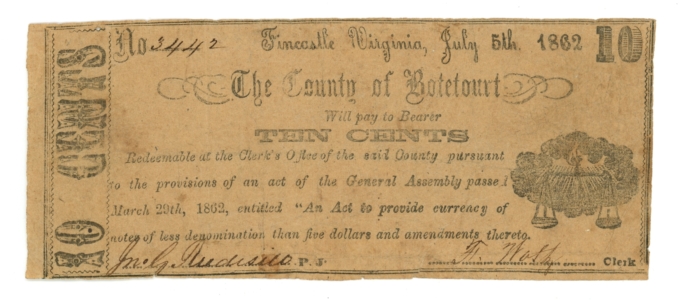 10 CENTS
No 3442 Fincastle Virginia, July 5th, 1862 10
The County of Botetourt
Will pay to Bearer
TEN CENTS
Redeemable at the Clerk's Office of the said County pursuant
to the provisions of an act of the General Assembly passed
March 29th, 1862, entitled "An Act to provide currency of
notes of less denomination than five dollars and amendments thereto.
P. J. Clerk